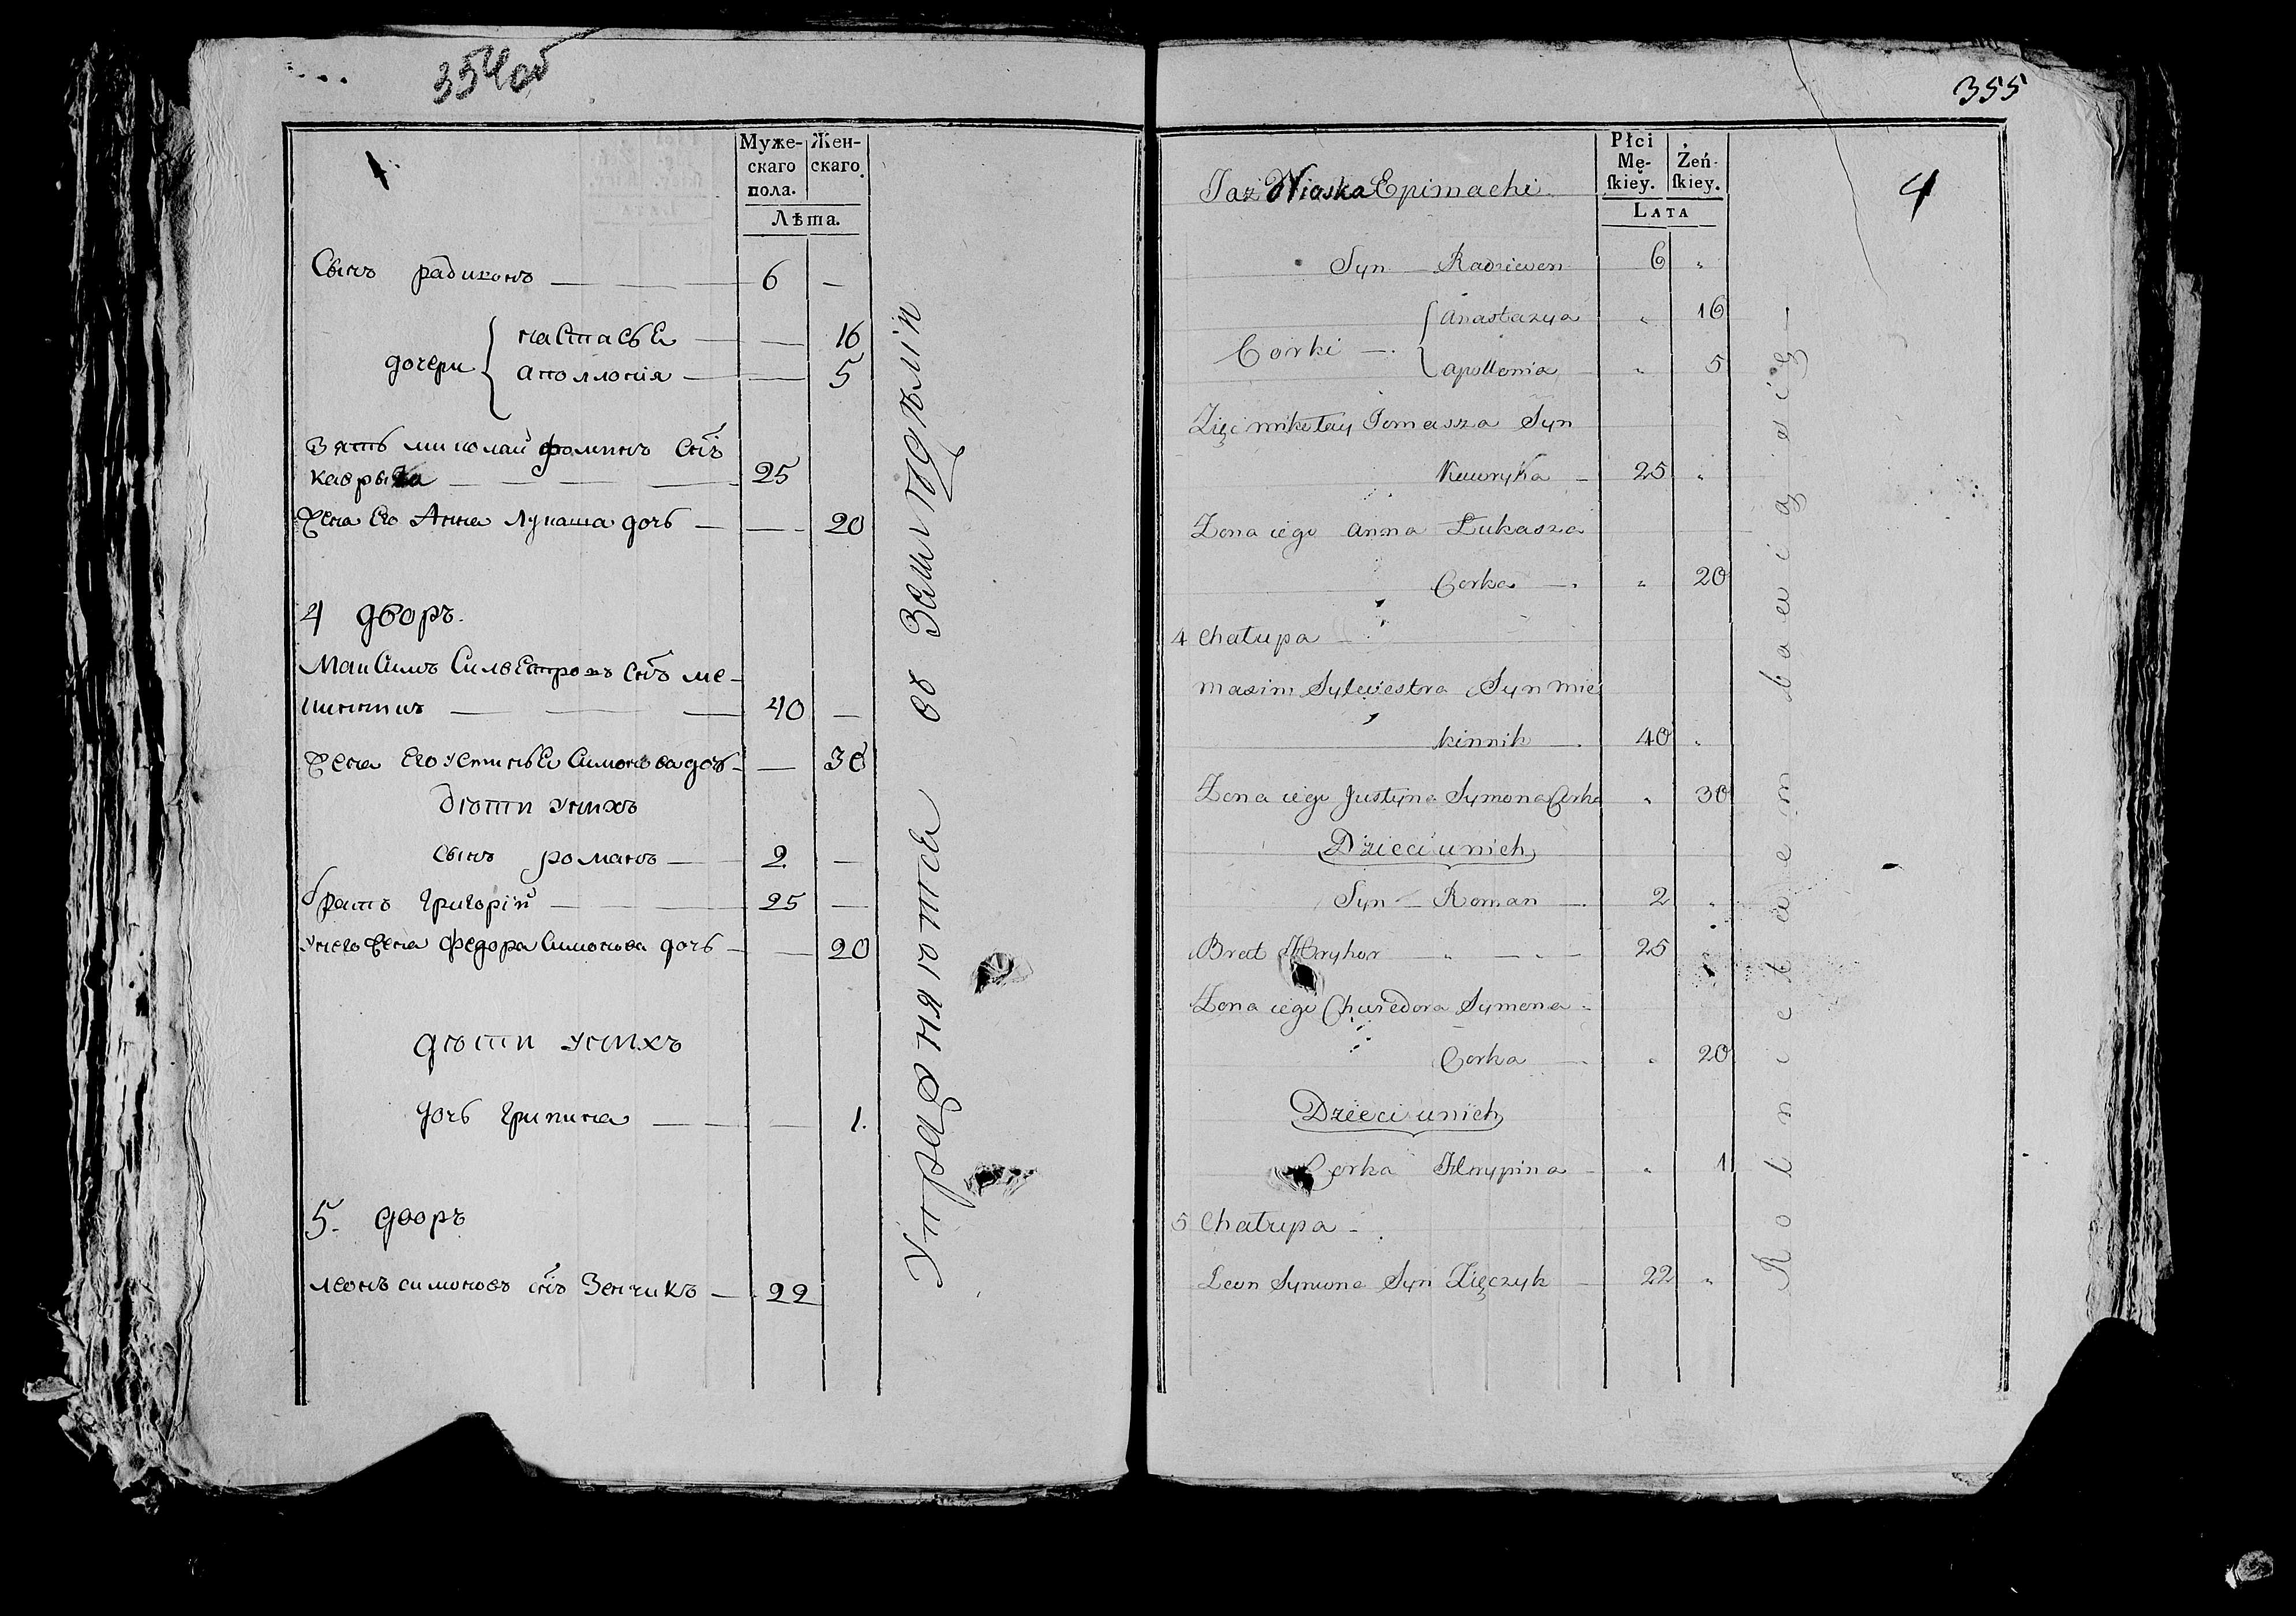 354об
4
Муже-
скаго
пола.
Жен-
скаго.
Лѣта.
Сынъ радивонъ 6 —
дочери
настасья — 16
аполлонія — 5
Зять миколай фоминъ сн҃ъ
каврыка 25
жена Его Анна Лукаша дочь — 20
4 дворъ.
Максимъ Сильвестровъ сн҃ъ ме-
шинникъ 40 —
жена Его устинья Симонова дочь — 30
дѣти унихъ
сынъ романъ 2 —
братъ григорій 25 —
унего жена федора Симонова дочь — 20
дѣти унихъ
дочь грипина — 1.
5. дворъ
леонъ симоновъ сн҃ъ Зенчикъ 22
Упражняются въ Земледѣліи
355
4
Taż Wioska Epimachi
Płci
Mę-
skiey.
Żeń-
skiey.
LATA
Syn — Radziwon 6 „
Corki —
Anastazya „ 16
Apollonia „ 5
Zięć mikołay Tomasza Syn
Kawryka 25 „
Zona iego Anna Łukasza
Corka — „ 20
4 Chałupa
Maxim Sylwestra Syn Mie
kinnik 40 „
Zona iego Justyna Symona Corka „ 30
Dzieci u nich
Syn — Roman 2 „
Brat Hryhor 25
Zona iego Chwiedora Symona
Corka „ 20
Dzieci u nich
Corka Hrypina „ 1
5 Chałupa
Leon Symona Syn Zięczyk 22 „
Rolnictwem bawią się